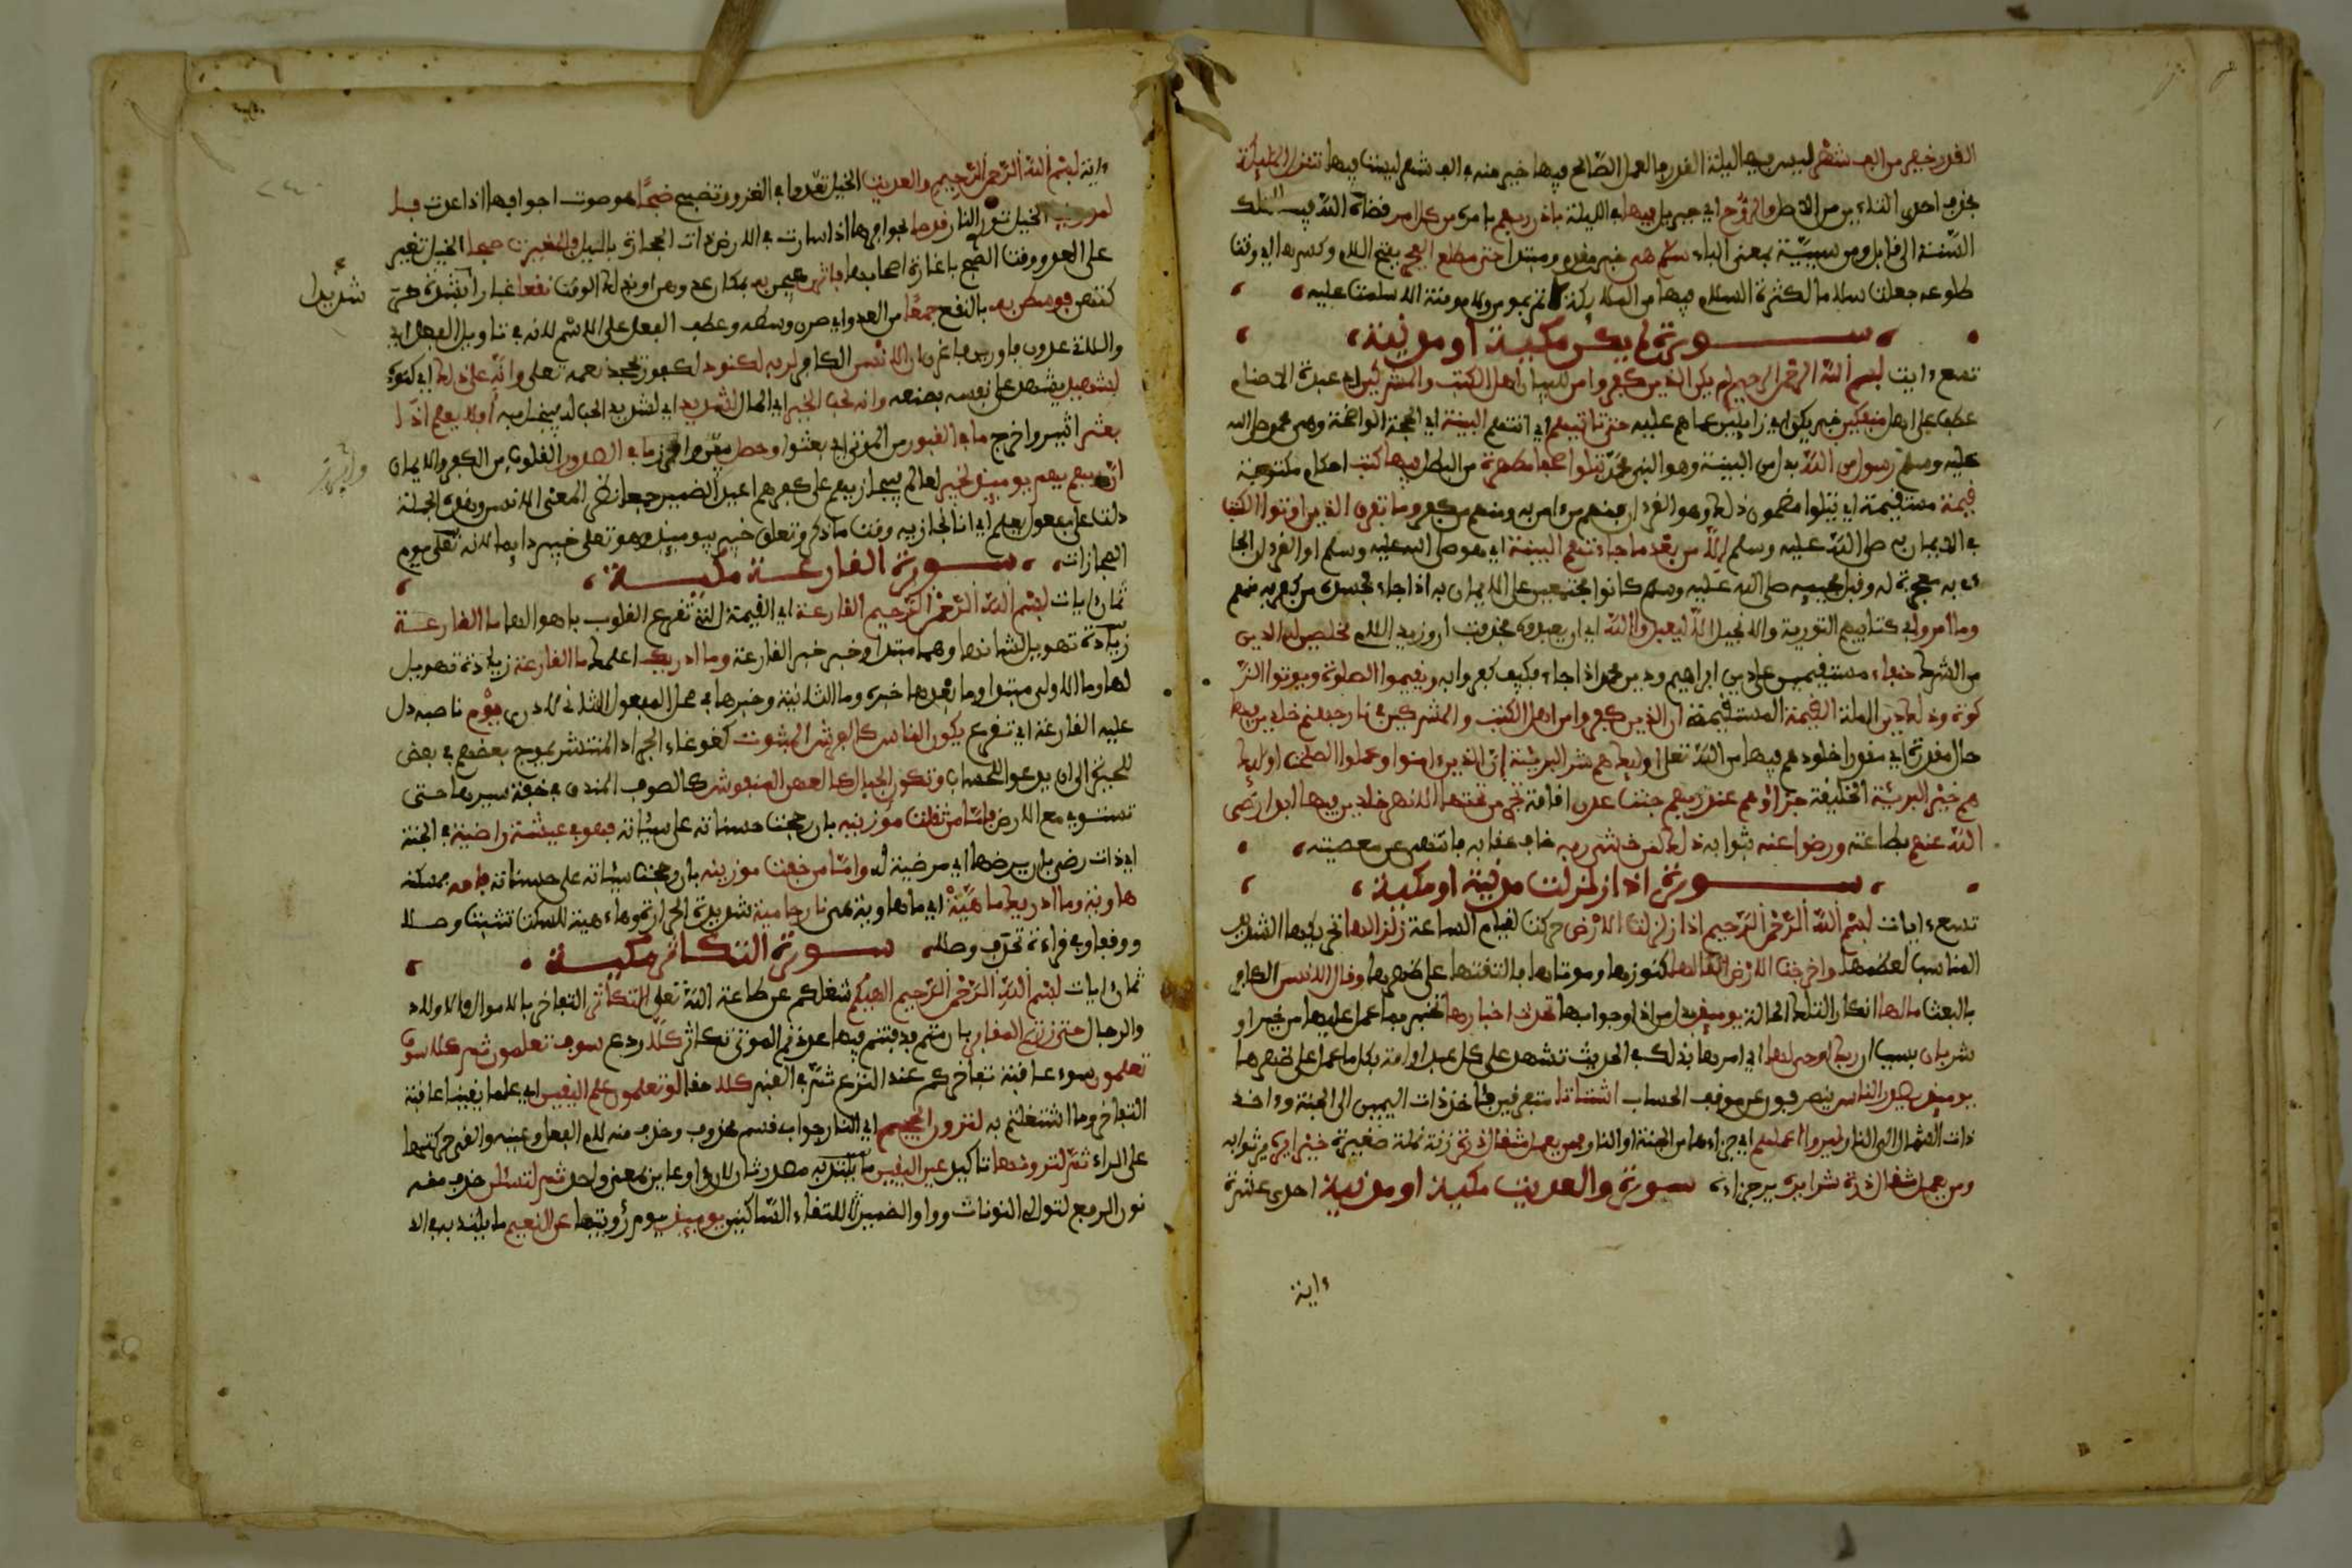 القدر خير من الف شهر ليس فيها ليلة القدر فالعمل الصالح فيها خير منه في الف شهر ليست فيها تنزل الملئكة
بحذف احدى التاءين من الاصل والروح اي جبريل فيها في الليلة باذن ربهم بامره من كل امر قضاه الله فيها لتلك
السّنة الى قابل ومن سببيّة بمعنى الباء سلم هي خبر مقدم ومبتدا حتى مطلع الفجر بفتح اللام وكسرها الى وقت
طلوعه جعلت سلاما لكثرة السلام فيها من الملايكة لا تمر بمومن ولا مومنة الا سلمت عليه
سورة لم يكن مكية او مدنية
تسع ءايت بسم الله الرحمن الرحيم لم يكن الذين كفروا من للبيان اهل الكتب والمشركين اي عبدة الاصنام
عطف على اهل منفكين خبر يكن اي زايلين عما هم عليه حتى تاتيهم اي اتتهم البينة اي الحجة الواضحة وهي محمد صلى الله
عليه وسلم رسول من الله بدل من البينة وهو النبي محمد يتلوا صحفا مطهرة من الباطل فيها كتب احكام مكتوبة
قيمة مستقيمة اي يتلوا مضمون ذلك وهو القرءان فمنهم من ءامن به ومنهم من كفر وما تفرق الذين اوتوا الكتب
في الايمان به صلى الله عليه وسلم الا من بعد ما جاءتهم البينة اي هو صلى الله عليه وسلم او القرءان الجا
ءي به معجزة له وقبل مجييه صلى الله عليه وسلم كانوا مجتمعين على الايمان به اذا جاء فحسده من كفر به منهم
وما امروا في كتابيهم التورية والانجيل الا ليعبدوا الله اي ان يعبدوه فحذفت ان وزيدت اللام مخلصين له الدين
من الشرك حنفاء مستقيمين على دين ابراهيم ودين محمد اذا جاء فكيف كفروا به ويقيموا الصلوة ويوتوا الز
كوة وذلك دين الملة القيمة المستقيمة ان الذين كفروا من اهل الكتب والمشركين في نار جهنم خلدين فيها
حال مقدرة اي مقدرا خلودهم فيها من الله تعلى اوليك هم شر البريئة ان الذين ءامنوا وعملوا الصلحت اوليك
هم خير البريئة الخليقة جزاؤهم عند ربهم جنت عدن اقامة تجري من تحتها الانهر خلدين فيها ابدا رضى
الله عنهم بطاعته ورضوا عنه بثوابه ذلك لمن خشي ربه خاف عقابه فانتهى عن معصيته
سورة اذا زلزلت مدنية او مكية
تسع ءايات بسم الله الرحمن الرحيم اذا زلزلت الارض حركت لقيام الساعة زلزالها تحريكها الشديد
المناسب لعظمها واخرجت الارض اثقالها كنوزها وموتاها فالقتها على ظهرها وقال الانسن الكافر
بالبعث مالها انكارا لتلك الحالة يوميذ بدل من اذا وجوابها تحدث اخبارها تخبر بما عمل عليها من خير او
شر بان بسبب ان ربك اوحى لها اي امرها بذلك في الحديث تشهد على كل عبد او امة بكل ما عمل على ظهرها
يوميذ يصدر الناس ينصرفون عن موقف الحساب اشتاتا متفرقين فئاخذ ذات اليمين الى الجنة وءاخذ
ذات الشمال الى النار ليروا اعملهم اي جزاءها من الجنة او النار فمن يعمل مثقال ذرة زنة نملة صغيرة خيرا يره ير ثوابه
ومن يعمل مثقال ذرة شرا يره ير جزاءه سورة والعديت مكية او مدنية احدى عشرة
ءاية
ءاية بسم الله الرحمن الرحيم والعديت الخيل تعدوا في الغزو وتضبح ضبحا هو صوت اجوافها اذا عدت فا
لموريت الخيل توري النار قدحا بحوافرها اذا سارت في الارض ذات الحجارة بالليل فالمغيرت صبحا الخيل تغير
على العدو وقت الصبح باغارة اصحابها فاثرن هيجن به بمكان عدوهن او بذلك الوقت نقعا غبارا بشدة حر
شديدا
كتهن فوسطن به بالنقع جمعا من العدو اي صرن وسطه وعطف الفعل على الاسم لانه في تاويل الفعل اي
واللاتي عدون فاورين فاغرن ان الانسن الكافر لربه لكنود لكفور يجحد نعمه تعلى وانه على ذلك اي كنوده
لشهيد يشهد على نفسه بصنعه وانه لحب الخير اي المال لشديد اي لشديد الحب له فيبخل به افلا يعلم اذا
بعثر اثير واخرج ما في القبور من الموتى اي بعثوا وحصل بين وافرز ما في الصدور القلوب من الكفر والايمان
ان ربهم بهم يوميذ لخبير لعالم فيجازيهم على كفرهم اعيد الضمير جمعا نظرا لمعنى الانسن وهذه الجملة
دلت على مفعول يعلم اي انا نجازيه وقت ما ذكر وتعلق خبير بيوميذ وهو تعلى خبير دايما لانه تعلى يوم
المجازات سورة القارعة مكية
ثمان ءايات بسم الله الرحمن الرحيم القارعة اي القيمة التي تقرع القلوب باهوالها ما القارعة
زيادة تهويل لشانها وهما مبتدا وخبر خبر القارعة وما ادريك اعلمك ما القارعة زيادة تهويل
لها وما الاولى مبتدا وما بعدها خبره وما الثانية وخبرها في محل المفعول الثاني لادرى يوم ناصبه دل
عليه القارعة اي تقرع يكون الناس كالفراش المبثوت كغوغاء الجراد المنتشر يموج بعضهم في بعض
للحيرة الى ان يدعوا للحساب وتكون الجبال كالعهن المنفوش كالصوف المندوف في خفة سيرها حتى
تستوي مع الارض فاما من ثقلت موزينه بان رجحت حسناته على سيئاته فهو في عيشة راضية في الجنة
اي ذات رضى بان يرضها اي مرضية له واما من خفت موزينه بان رجحت سيئاته على حسناته فامه فمسكنه
هاوية وما ادريك ماهية اي ماهاوية هي نار حامية شديدة الحرارة وهاء هية للسكت تثبت وصلا
ووقفا وفي قراءة تحذف وصلا سورة التكاثر مكية
ثمان ءايات بسم الله الرحمن الرحيم الهيكم شغلكم عن طاعة الله تعلى التكاثر التفاخر بالاموال والاولاد
والرجال حتى زرتم المقابر بان متم فدفنتم فيها او عددتم الموتى تكاثرا كلا ردع سوف تعلمون ثم كلا سوف
تعلمون سوء عاقبة تفاخركم عند النزع ثم في القبر كلا حقا لو تعلمون علم اليقين اي علما يقينا عاقبة
التفاخر وما اشتغلتم به لترون الجحيم اي النار جواب قسم محذوف وحذف منه لام الفعل وعينه والقي حركتها
على الراء ثم لترونها تاكيد عين اليقين مصدر لان رءا وعاين بمعنى واحد ثم لتسئلن حذف منه
نون الرفع لتوالي النونات وواو الضمير لالتقاء الساكنين يوميذ يوم رؤيتها عن النعيم ما يلتذ به في الد